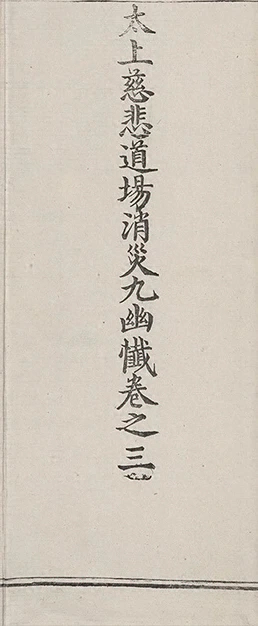 太上慈悲道場消災九幽懺卷之三